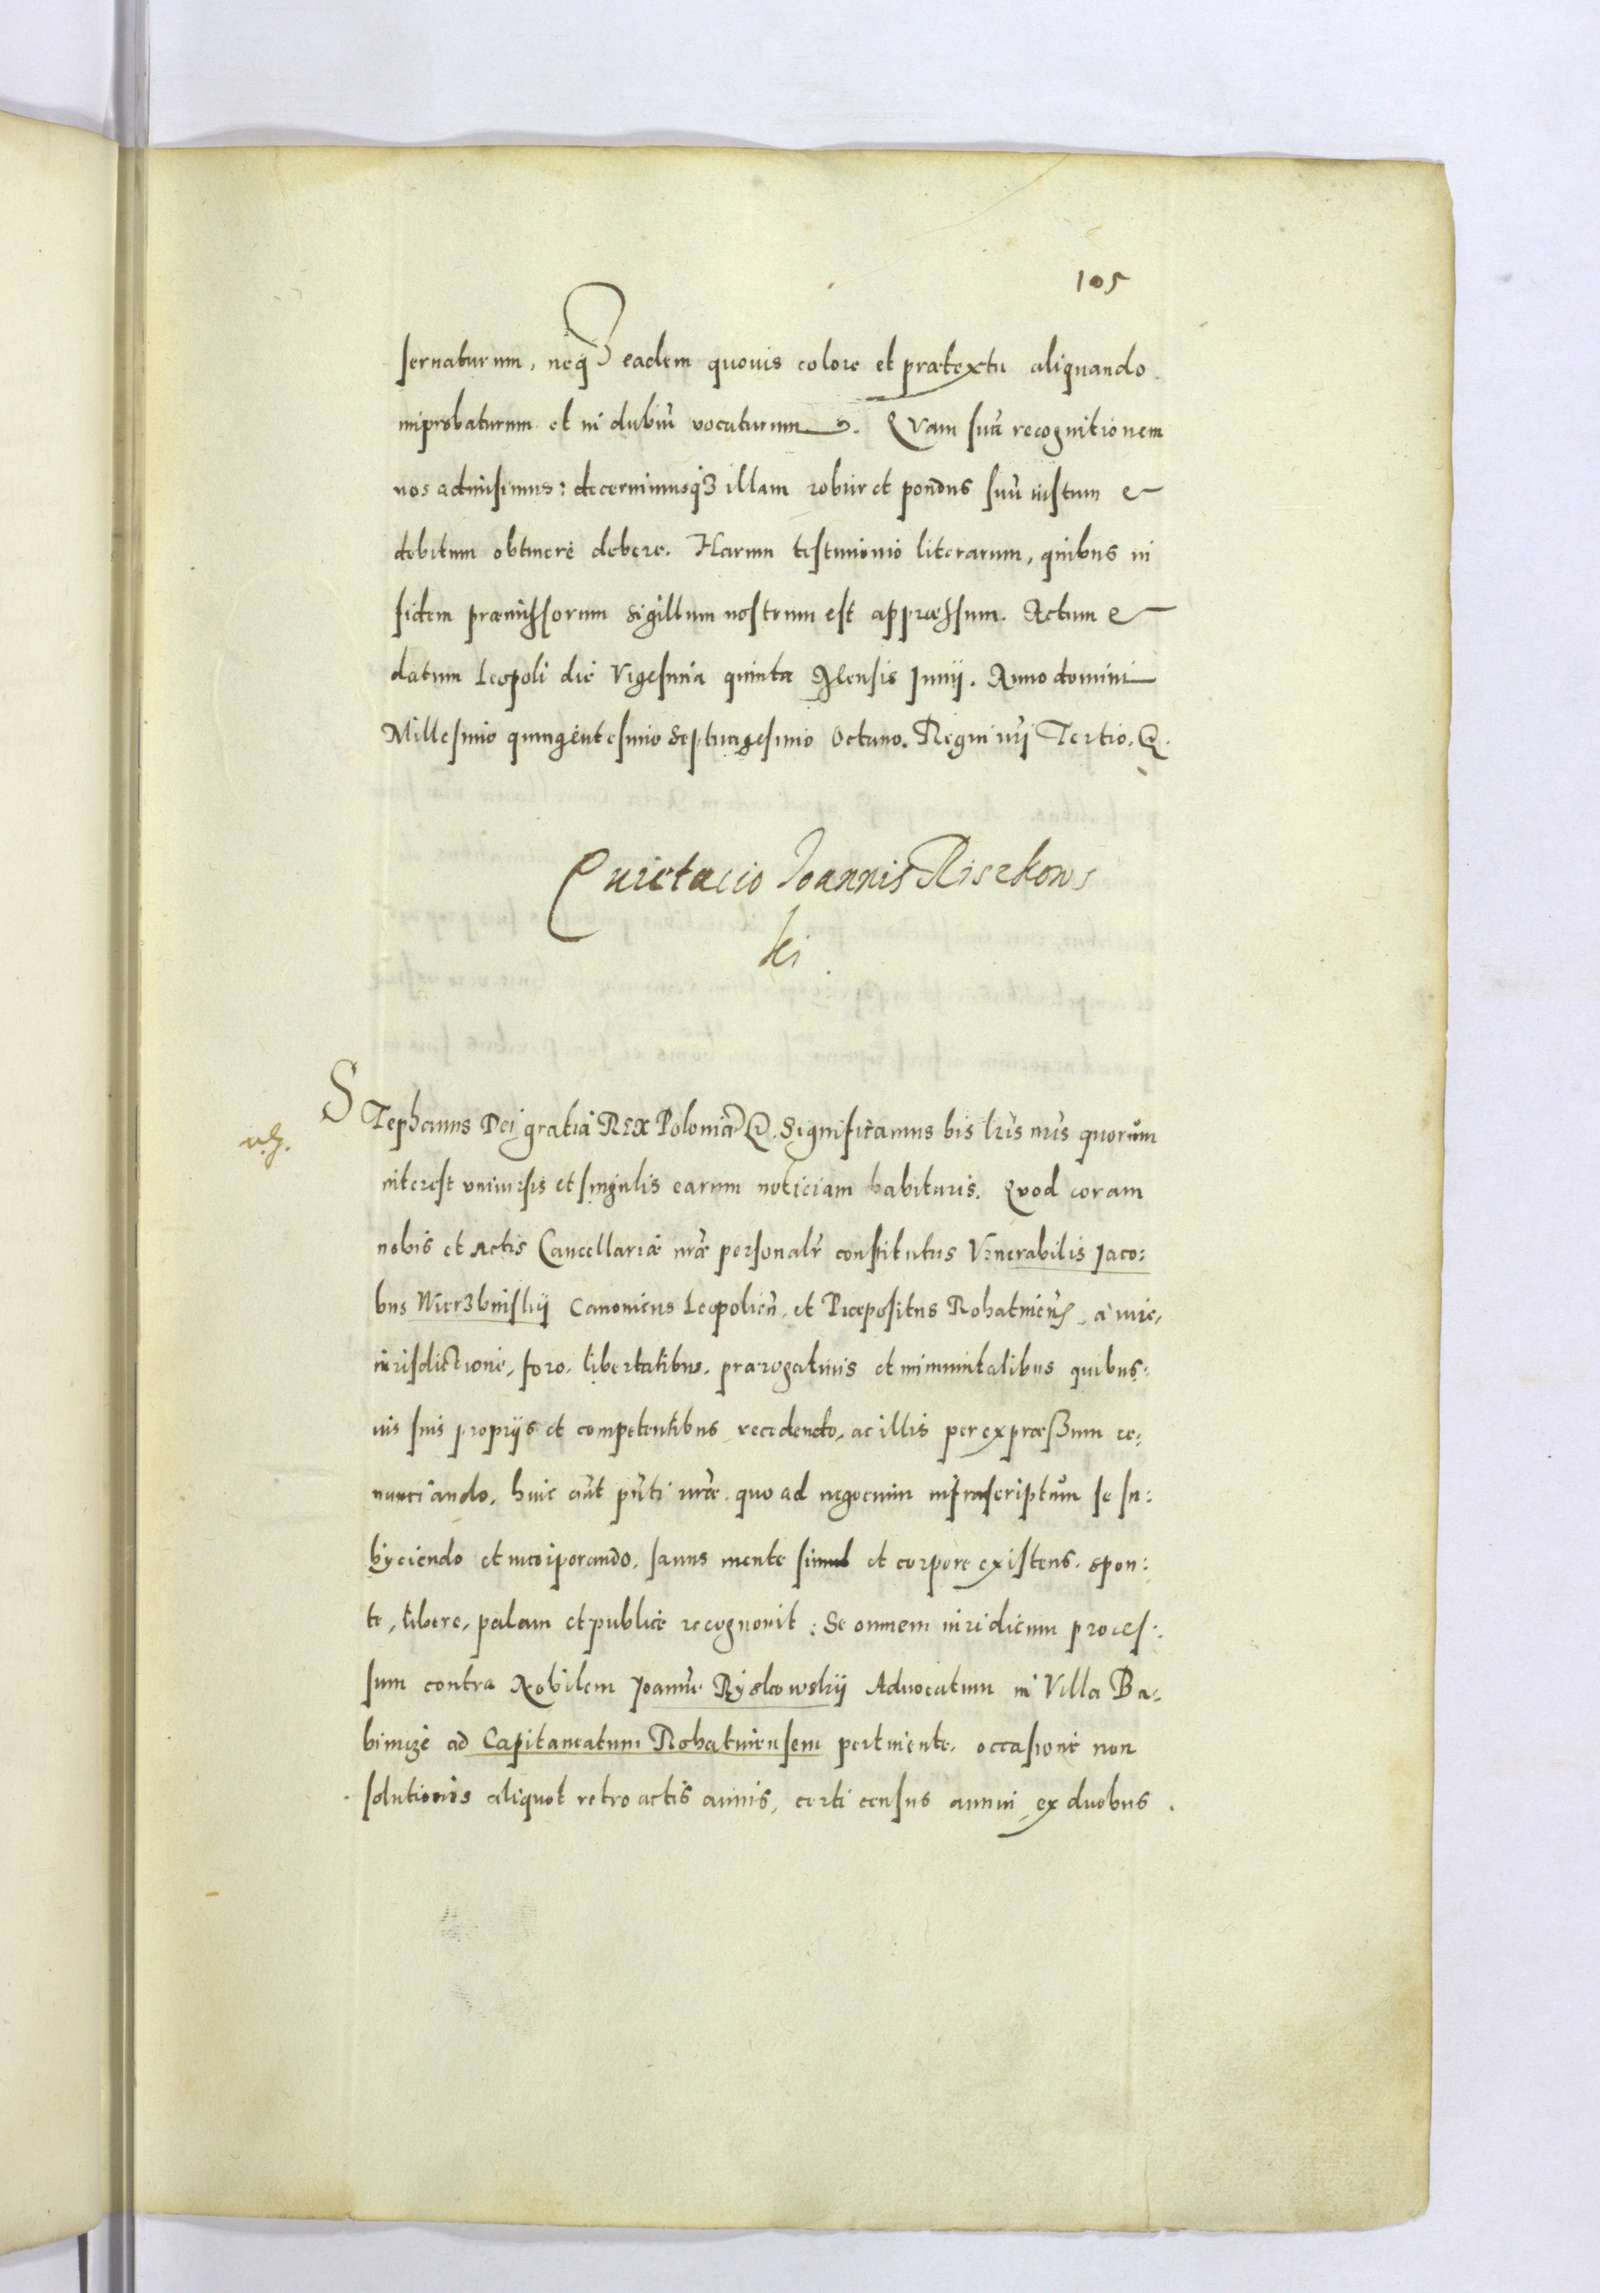 105
seruaturum, neq(ue) eadem quouis colore et prætextu aliquando
improbaturum et in dubiū vocaturum. Quam suā recognitionem
nos admisimus: decernimusq3 illam robur et pondus suū iustum &
debitum obtinere debere. Harum testimonio literarum, quibus in
fidem præmissorum sigillum nostrum est appræssum. Actum &
datum Leopoli die Vigesima quinta Mensis Junij. Anno domini
Millesimo quingentesimo Septuagesimo Octauo. Regni nr̄i Tertio. &.
Quietacio Joannis Riszkows
ki
STephanus Dei gratia REX Poloniæ &. Significamus his lr̄is nr̄is quorum
interest vniuersis et singulis earum noticiam habituris. Quod coram
nobis et Actis Cancellariæ nr̄æ personalr̄ constitutus Venerabilis Jaco:
bus Wierzbniskij Canonicus Leopolien̄. et Præpositus Rohatinen̄s, a iure,
iurisdictione, foro, libertatibus, prærogatiuis et immunitatibus quibus:
uis suis proprijs et competentibus recedendo, ac illis per expræssum re:
nunciando, huic aūt pn̄ti nr̄æ quo ad negocium infrascriptum se su:
byciendo et incorporando, sanus mente simul et corpore existens, spon:
te, libere, palam et publice recognouit: Se omnem iuridicum proces:
sum contra Nobilem Joannē Ryskowskij Aduocatum in Villa Ba:
bincze ad Capitaneatum Rohatinensem pertinente, occasione non
solutionis aliquot retro actis annis, certi census annui ex duobus